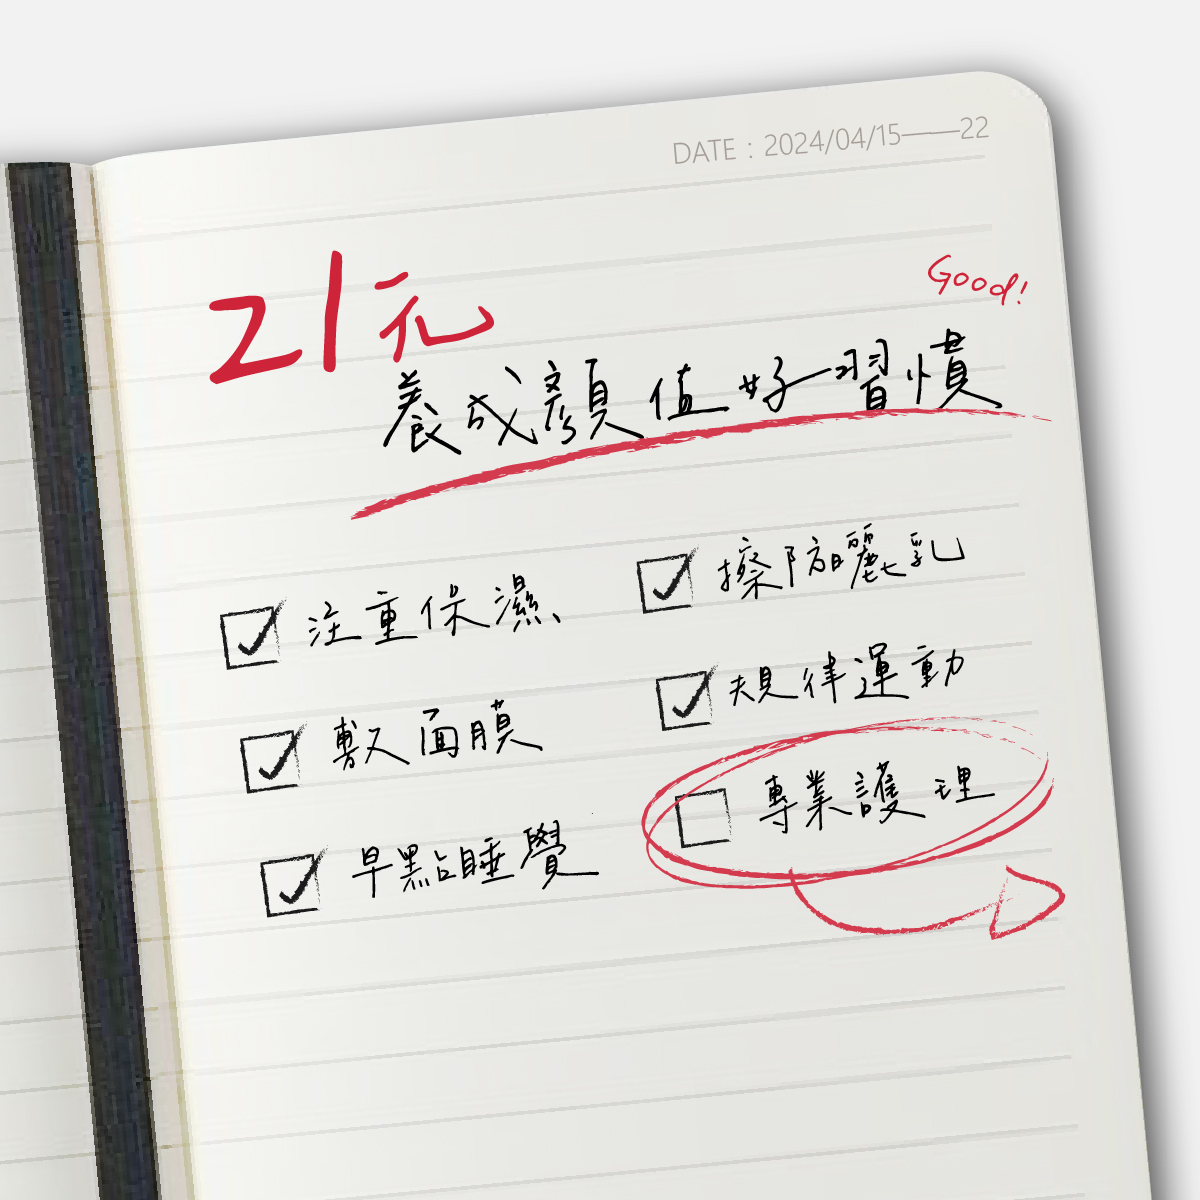 DATE：2024/04/15——22
Good!
21元
養成顏值好習慣
注重保濕
敷面膜
早點睡覺
擦防曬乳
規律運動
專業護理